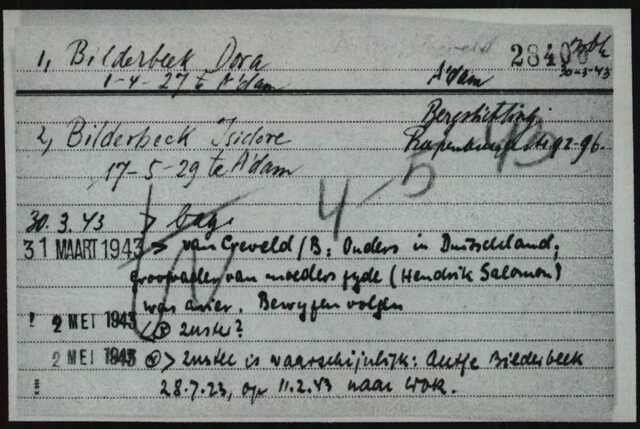 1, Bilderbeek Dora 28406
1-4-27 te A'dam A'dam 30-3-43
Bergstichting
2, Bilderbeek Isidore 92-96.
17-5-29 te A'dam
4-5
30.3.43 >
31 MAART 1943 > van Creveld/B: Ouders in Duitschland;
grootvader van moeders zyde (Hendrik Salomon)
was arier. Bewyzen volgen
! 2 MEI 1943 zuster?
2 MEI 1943 > zuster is waarschijnlijk: Aeltje Bilderbeek
28.7.23, op 11.2.43 naar Wbk.